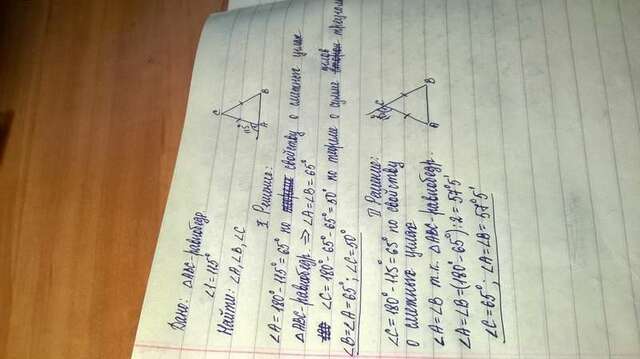 Дано: △ABC-равнобедр.
∠1=115°
Найти: ∠A,∠B,∠C
C
B
A
115°
I Решение:
∠A=180°-115°=65° по свойству о смежных углах
△ABC-равнобедр. ⇒ ∠A=∠B=65°
∠C=180°-65°-65°=50° по теореме о сумме углов треуголь
∠B=∠A=65°; ∠C=50°
C
B
A
II Решение:
∠C=180°-115°=65° по свойству
о смежных углах
∠A=∠B т.к. △ABC-равнобедр.
∠A=∠B=(180°-65°):2=57°5'
∠C=65°; ∠A=∠B=57°5'